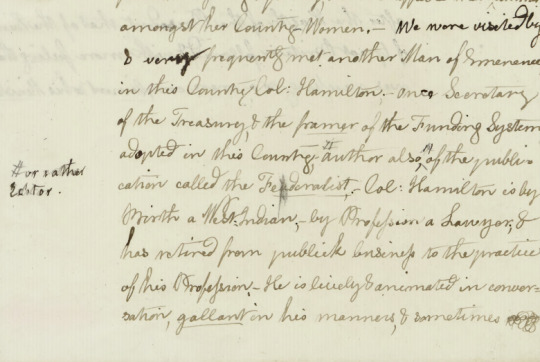 amongst her Country-Women. – We were visited by
& very frequently met another Man of Eminence
in this Country Col: Hamilton, – once Secretary
of the Treasury, & the framer of the Funding System
adopted in this Country, author also, of the publi-
cation called the Federalist, – Col: Hamilton is by
Birth a West-Indian, – by Profession a Lawyer, &
has retired from publick business to the practice
of his Profession. – He is lively & animated in conver-
sation, gallant in his manners, & sometimes
# or rather
Editor.